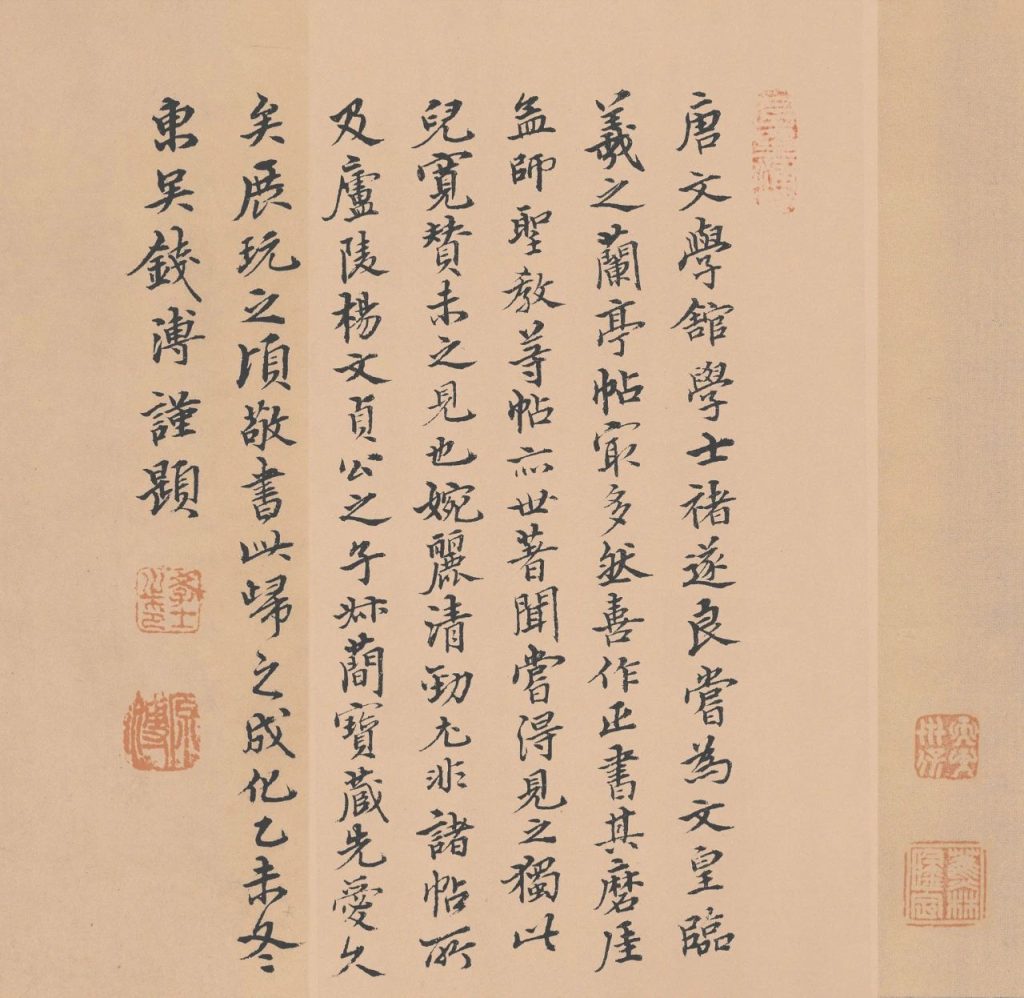 唐文學館學士褚遂良嘗為文皇臨
羲之蘭亭帖冣多然善作正書其磨崖
孟師聖教等帖亦世著聞嘗得見之獨此
兒寬贊未之見也婉麗清勁尤非諸帖所
及廬陵楊文貞公之子叔簡寶藏先愛久
矣展玩之頃敬書此歸之成化乙未冬
東吳錢溥謹題